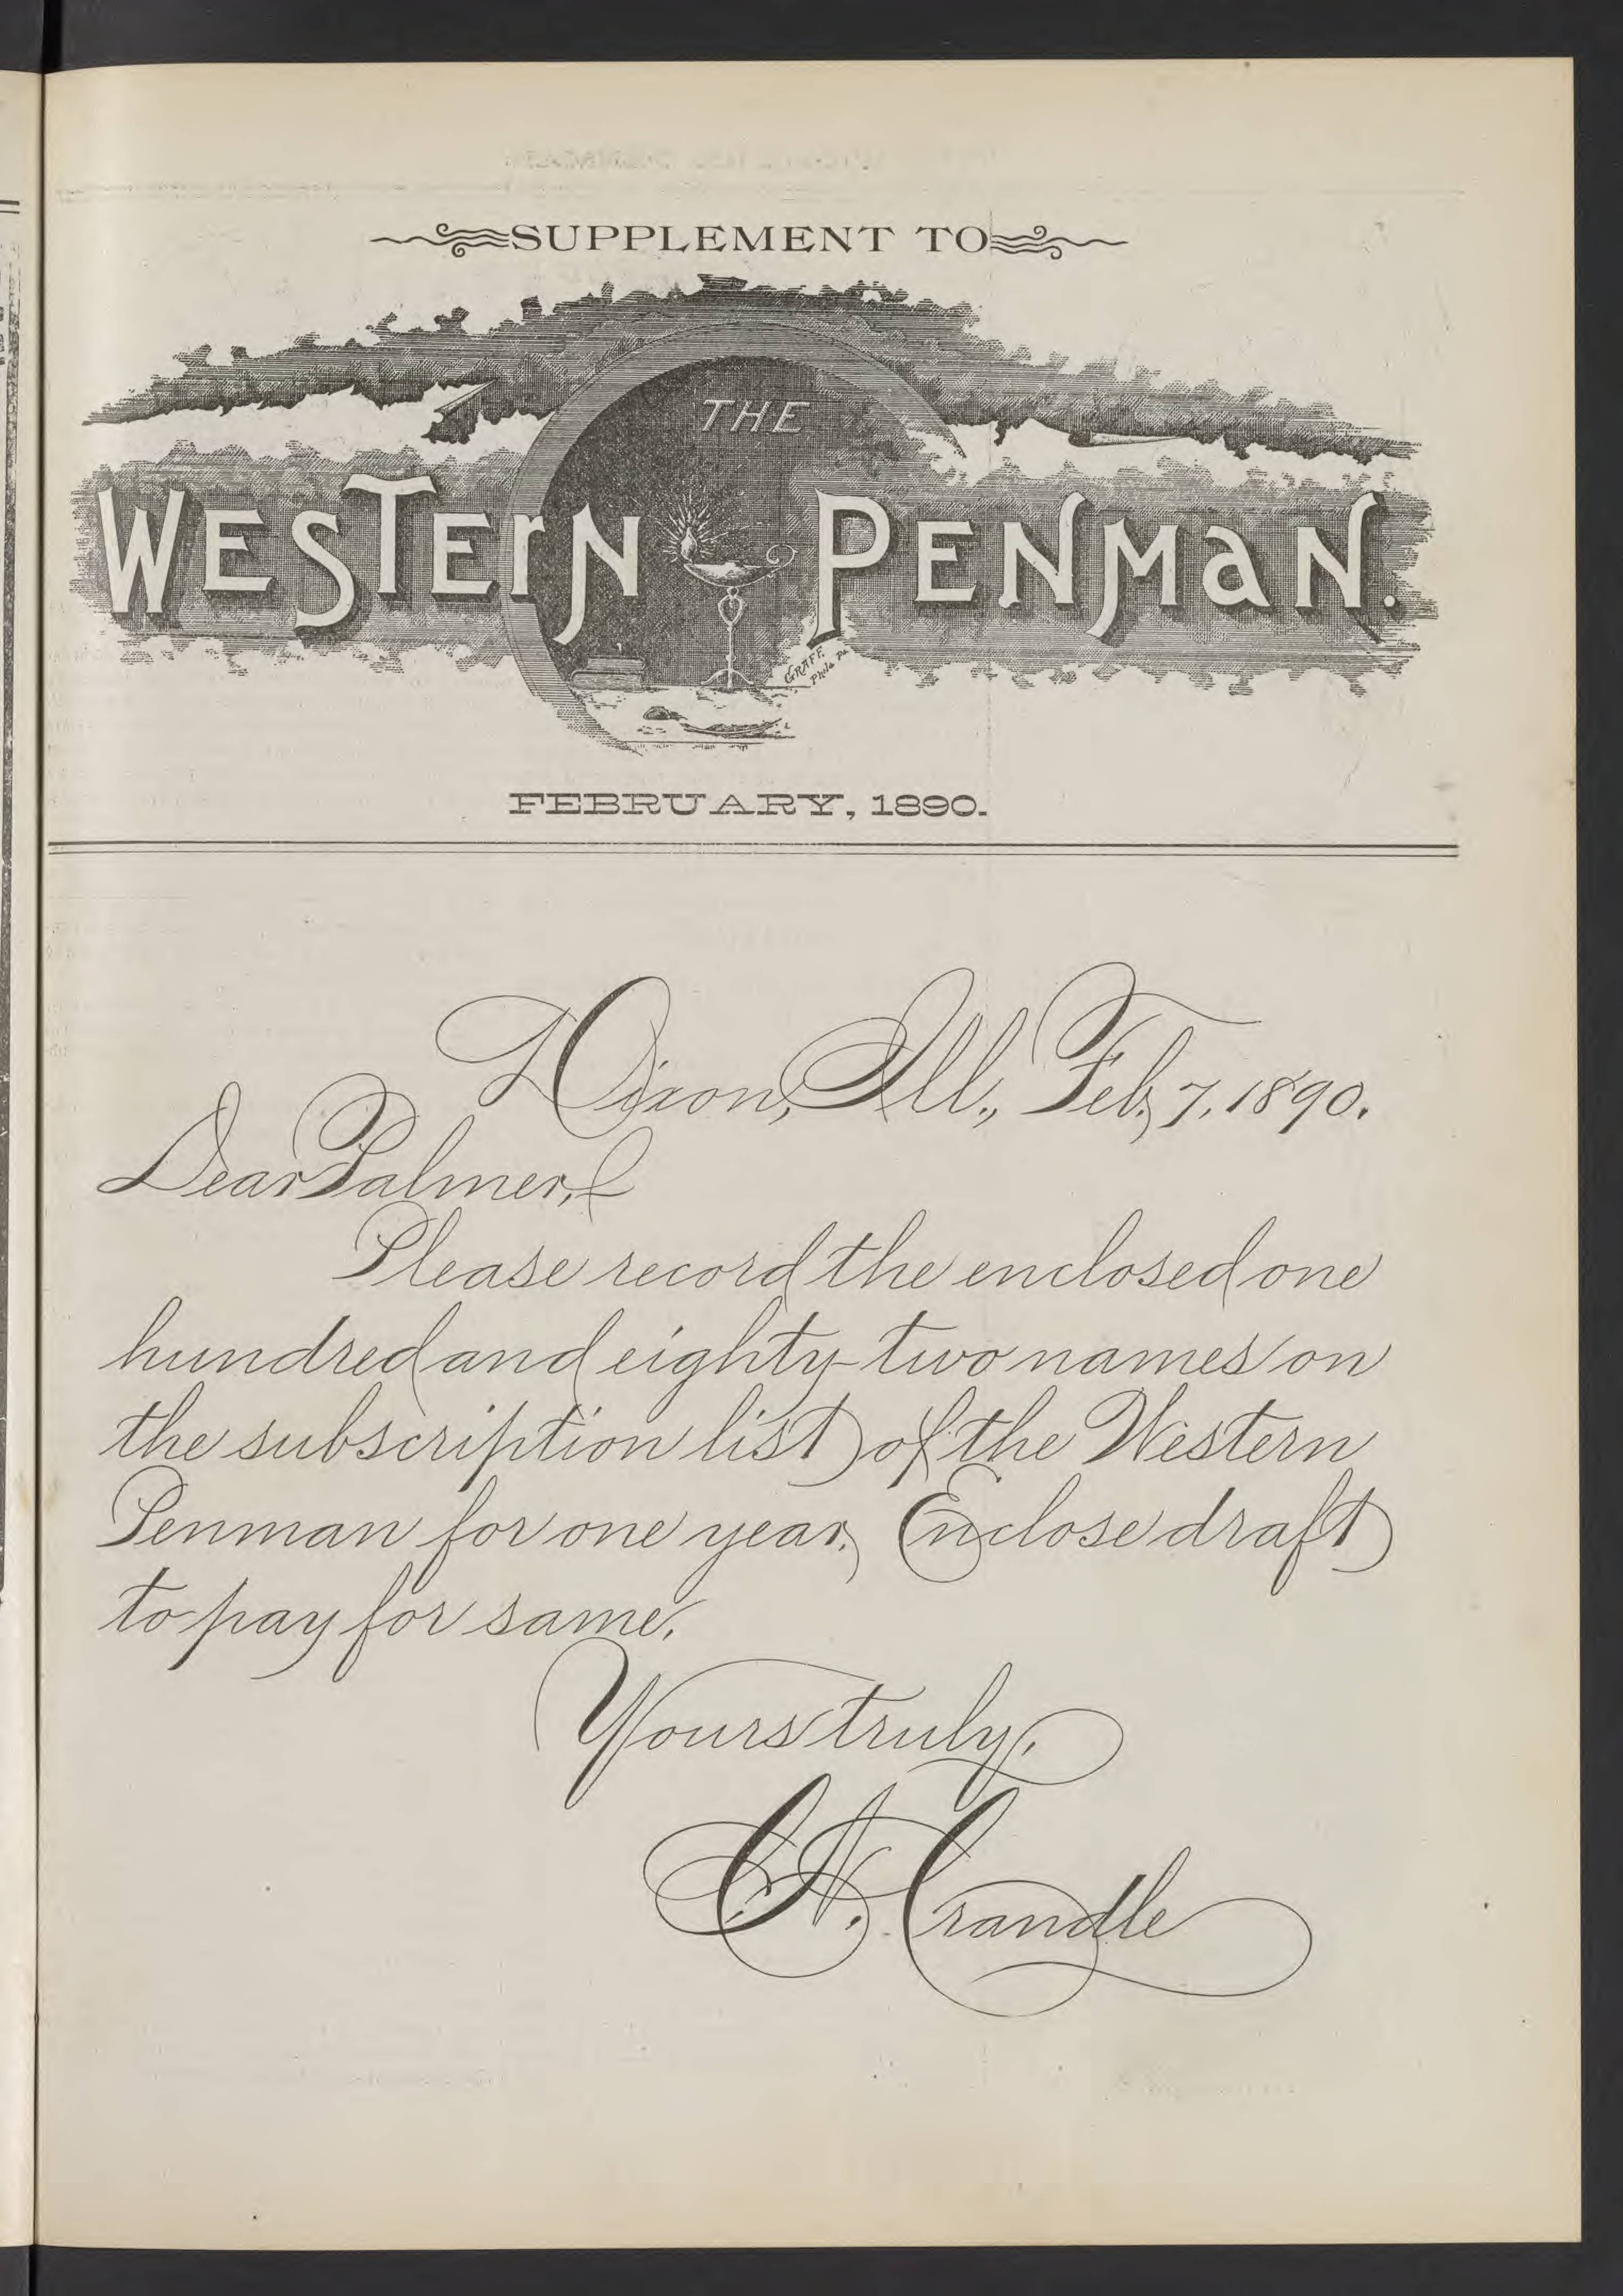 SUPPLEMENT TO
THE
WESTERN PENMAN.
GRAFF.
Phila Pa
FEBRUARY, 1890.
Dixon, Ill., Feb. 7, 1890.
Dear Palmer,
Please record the enclosed one
hundred and eighty-two names on
the subscription list of the Western
Penman for one year. Enclose draft
to pay for same.
Yours truly,
C. N. Crandle